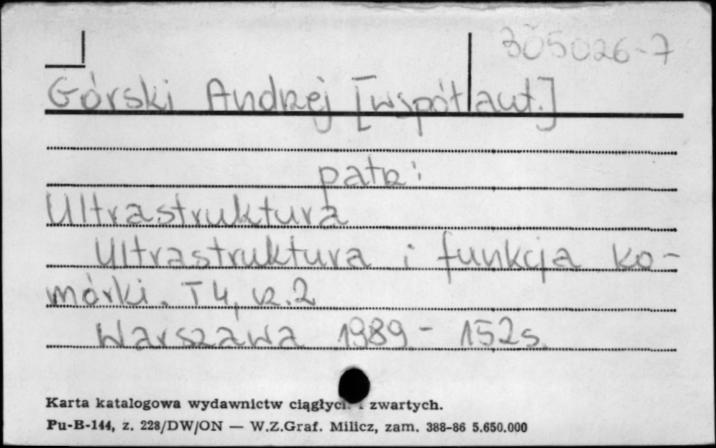 305026-7
Górski Andrzej [współaut.]
patrz:
Ultrastruktura
Ultrastruktura i funkcja ko-
mórki. T4, cz.2
Warszawa 1989 - 152s.
Karta katalogowa wydawnictw ciągłych i zwartych.
Pu-B-144, z. 228/DW/ON — W.Z.Graf. Milicz, zam. 388-86 5.650.000